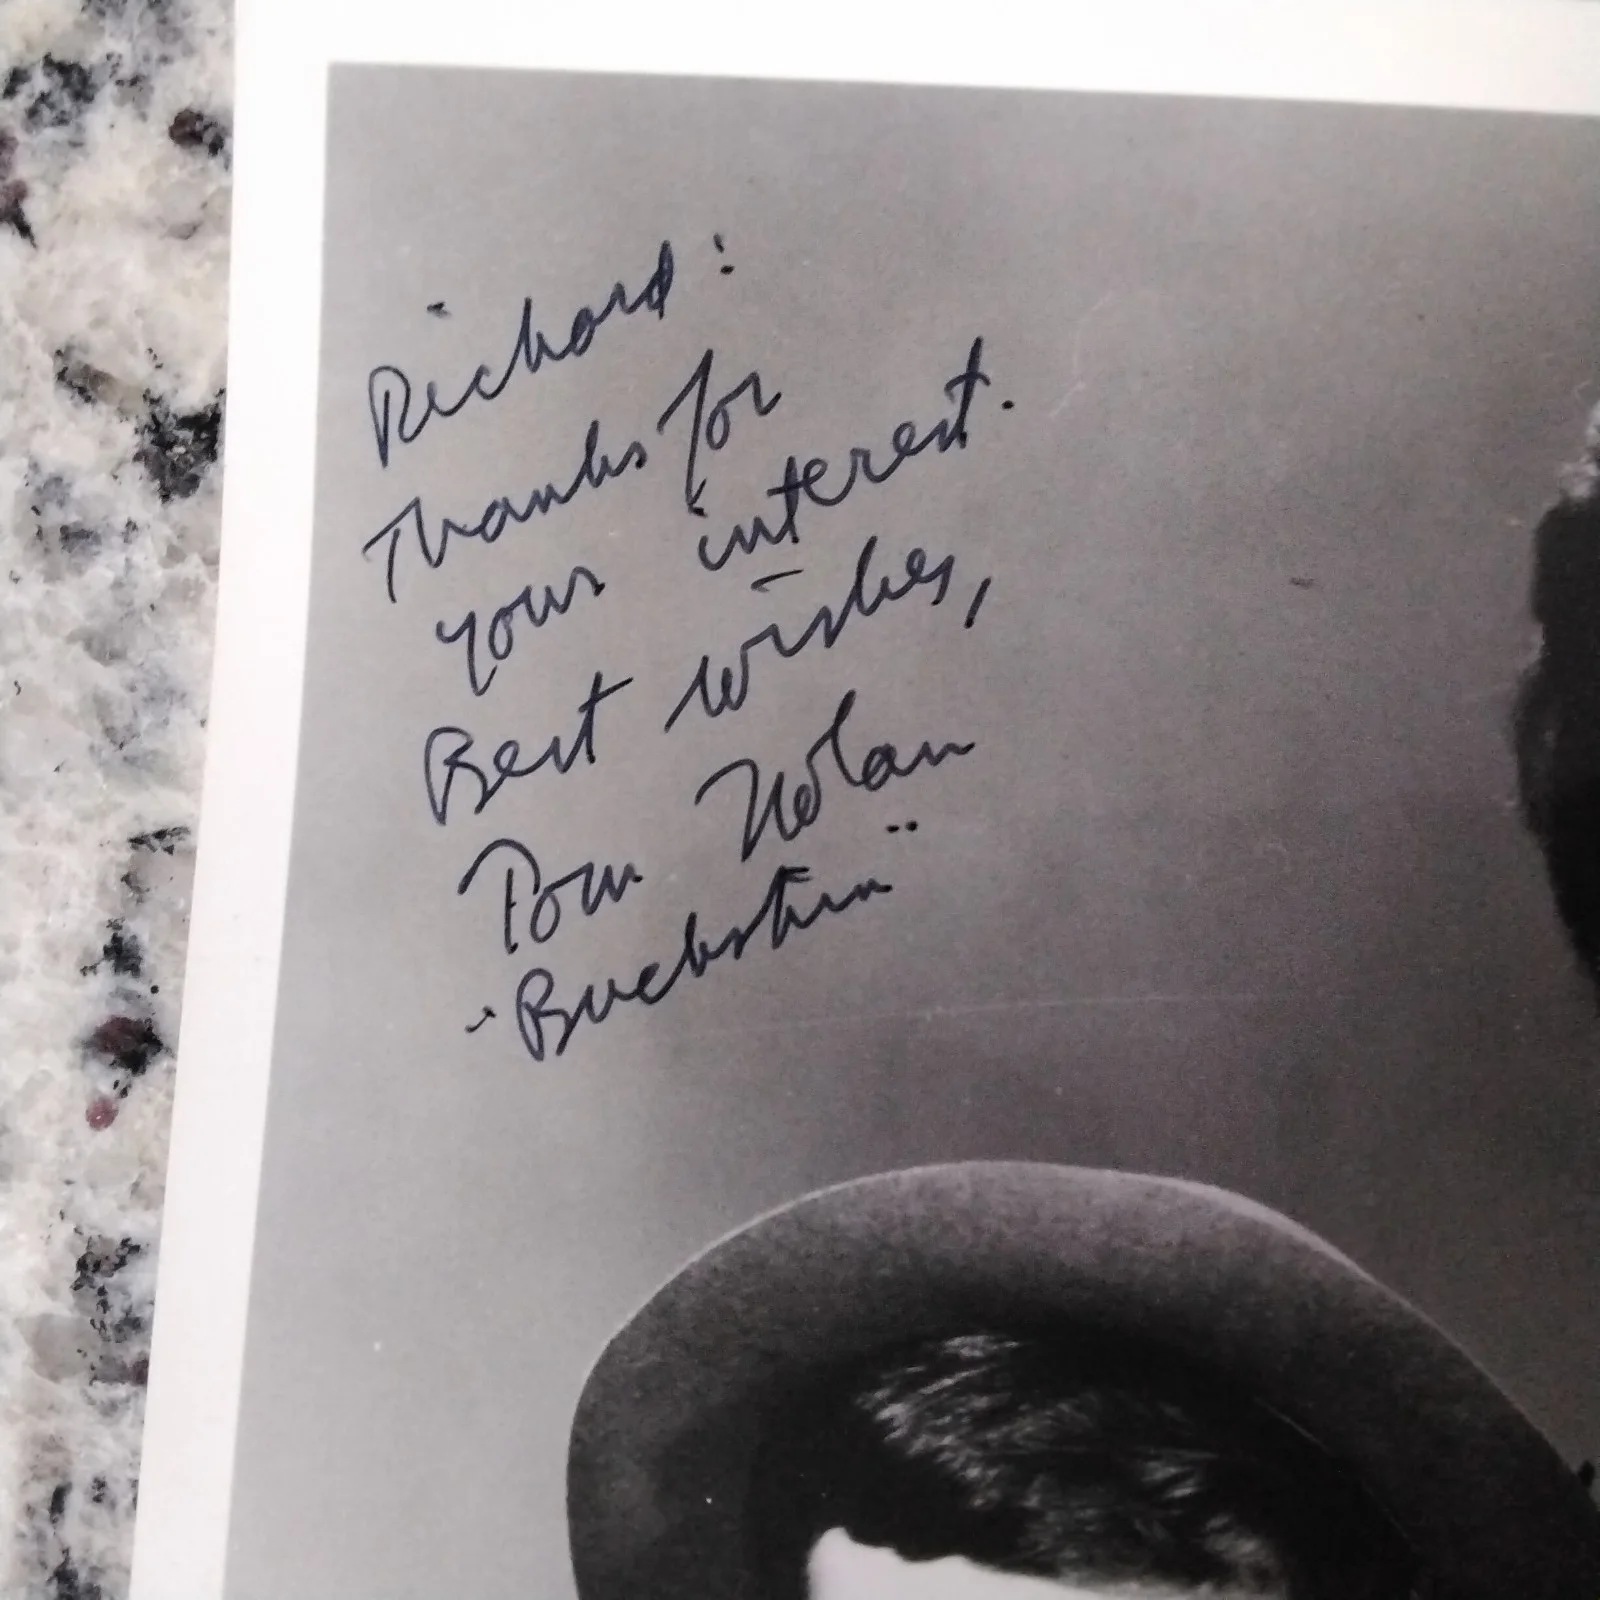 Richard:
Thanks for
your interest.
Best wishes,
Tom Nolan
"Buckskin"